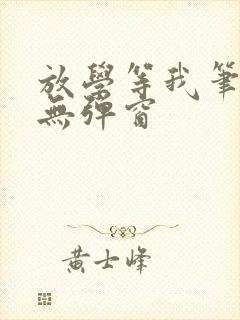 放學等我筆
無彈窗
黃士峰